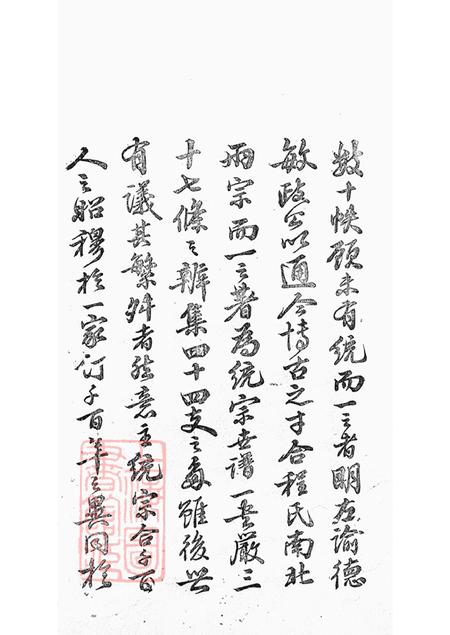 數十帙顧未有統而一之者明左諭德
敏政公以通今博古之才合程氏南北
兩宗而一之著為統宗世譜一書嚴三
十七條之辨集四十四支之雖後世
有議其繁舛者然意主統宗合千百
人之昭穆於一家訂千百年之異同於